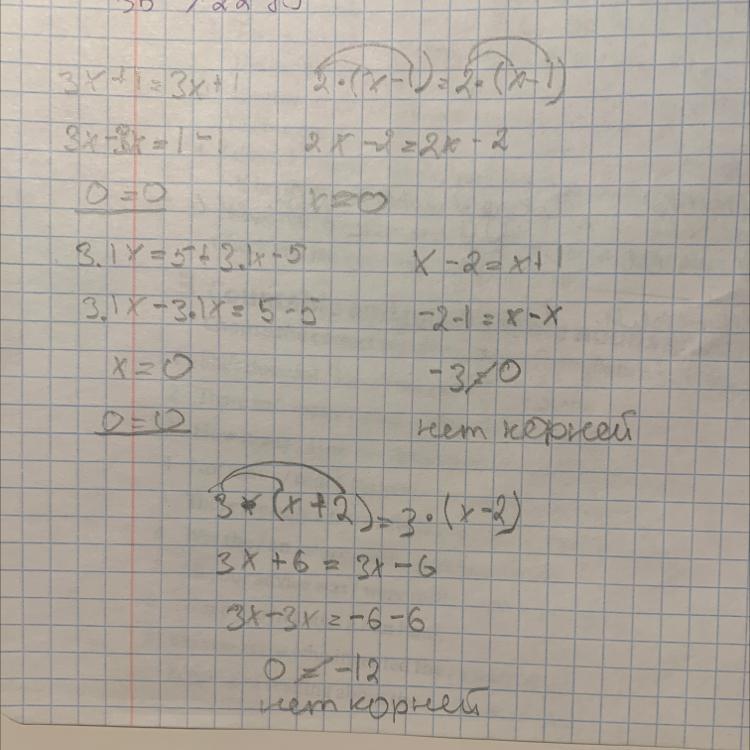 3x+1=3x+1
3x-3x=1-1
0=0
2·(x-1)=2·(x-1)
2x-2=2x-2
x=0
3.1x=5+3.1x-5
3.1x-3.1x=5-5
x=0
0=0
x-2=x+1
-2-1=x-x
-3≠0
нет корней
3·(x+2)=3·(x-2)
3x+6=3x-6
3x-3x=-6-6
0≠-12
нет корней